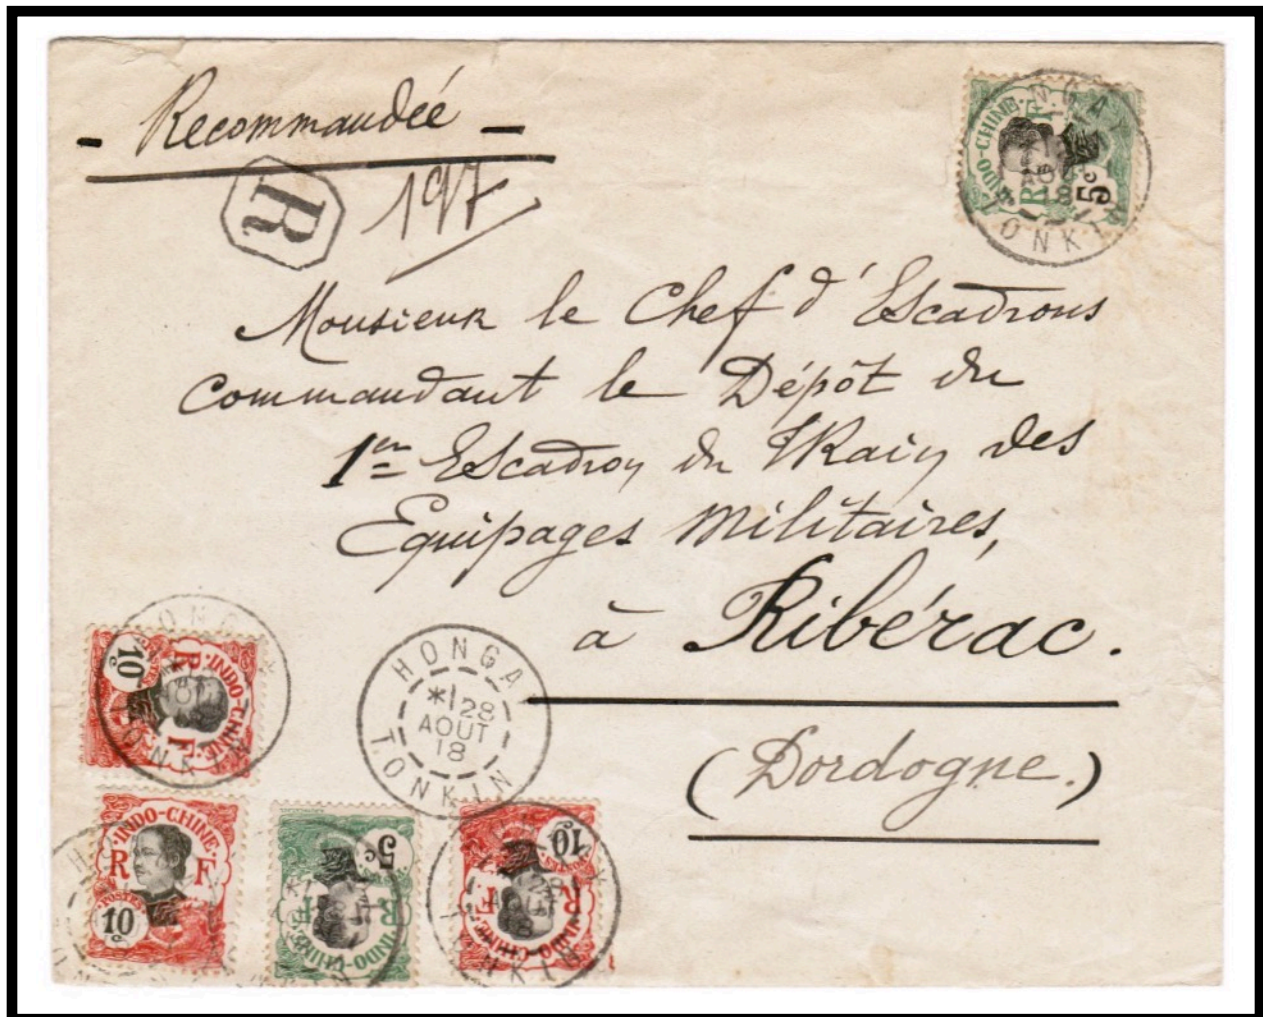 - Recommandée -
R 197
INDO-CHINE
R F
5c
ONKIN
Monsieur le Chef d'Escadrons
commandant le Dépôt du
1er Escadron du Train des
Equipages Militaires,
à Ribérac.
(Dordogne.)
HONGAY
*1 28
AOUT
18
TONKIN
INDO-CHINE
R F
POSTES
10c
TONKIN
INDO-CHINE
R F
POSTES
10c
INDO-CHINE
R F
5c
INDO-CHINE
R F
10c
AOUT
18
TONKIN